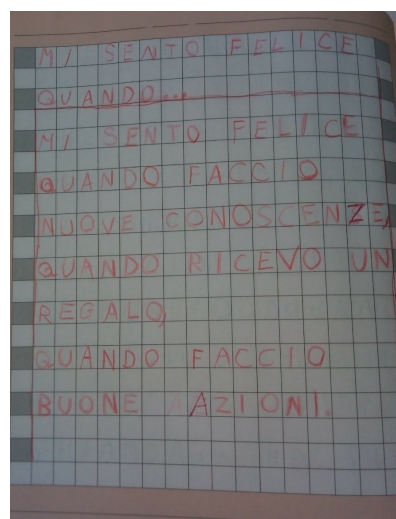 MI SENTO FELICE
QUANDO...
MI SENTO FELICE
QUANDO FACCIO
NUOVE CONOSCENZE,
QUANDO RICEVO UN
REGALO,
QUANDO FACCIO
BUONE AZIONI.